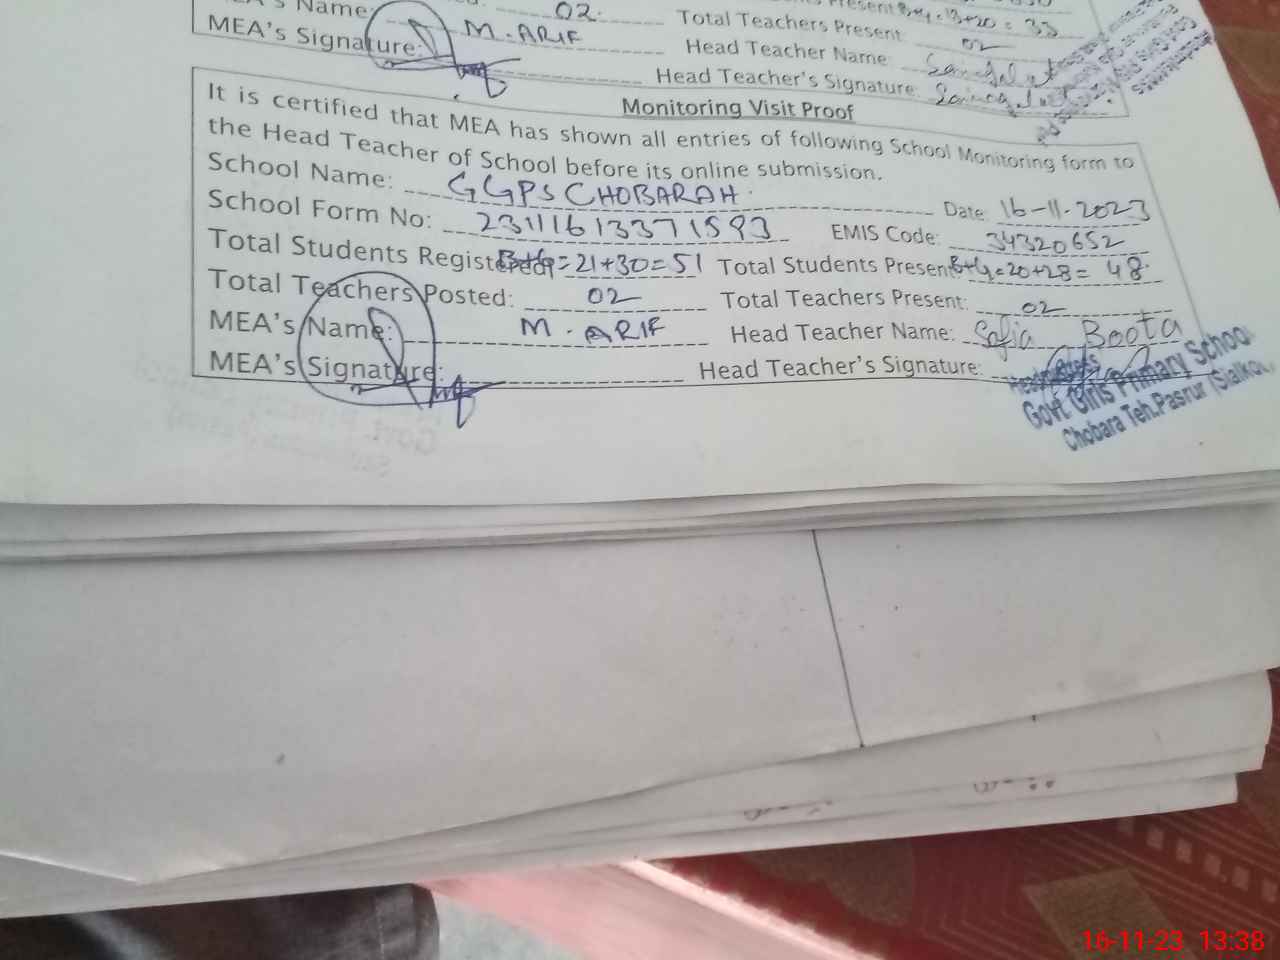 Name: M. ARIF
02
Total Teachers Present: 02
MEA's Signature:
Head Teacher Name:
Head Teacher's Signature:
Monitoring Visit Proof
It is certified that MEA has shown all entries of following School Monitoring form to
the Head Teacher of School before its online submission.
School Name: GGPS CHOBARAH. Date: 16-11-2023
School Form No: 23111613371593 EMIS Code: 34320652
Total Students Registered: B+G=21+30=51 Total Students Present: B+G=20+28=48
Total Teachers Posted: 02 Total Teachers Present: 02
MEA's Name: M. ARIF Head Teacher Name: Safia Boota
MEA's Signature: Head Teacher's Signature:
Headmistress
Govt Girls Primary School
Chobara Teh.Pasrur (Sialkot)
16-11-23 13:38